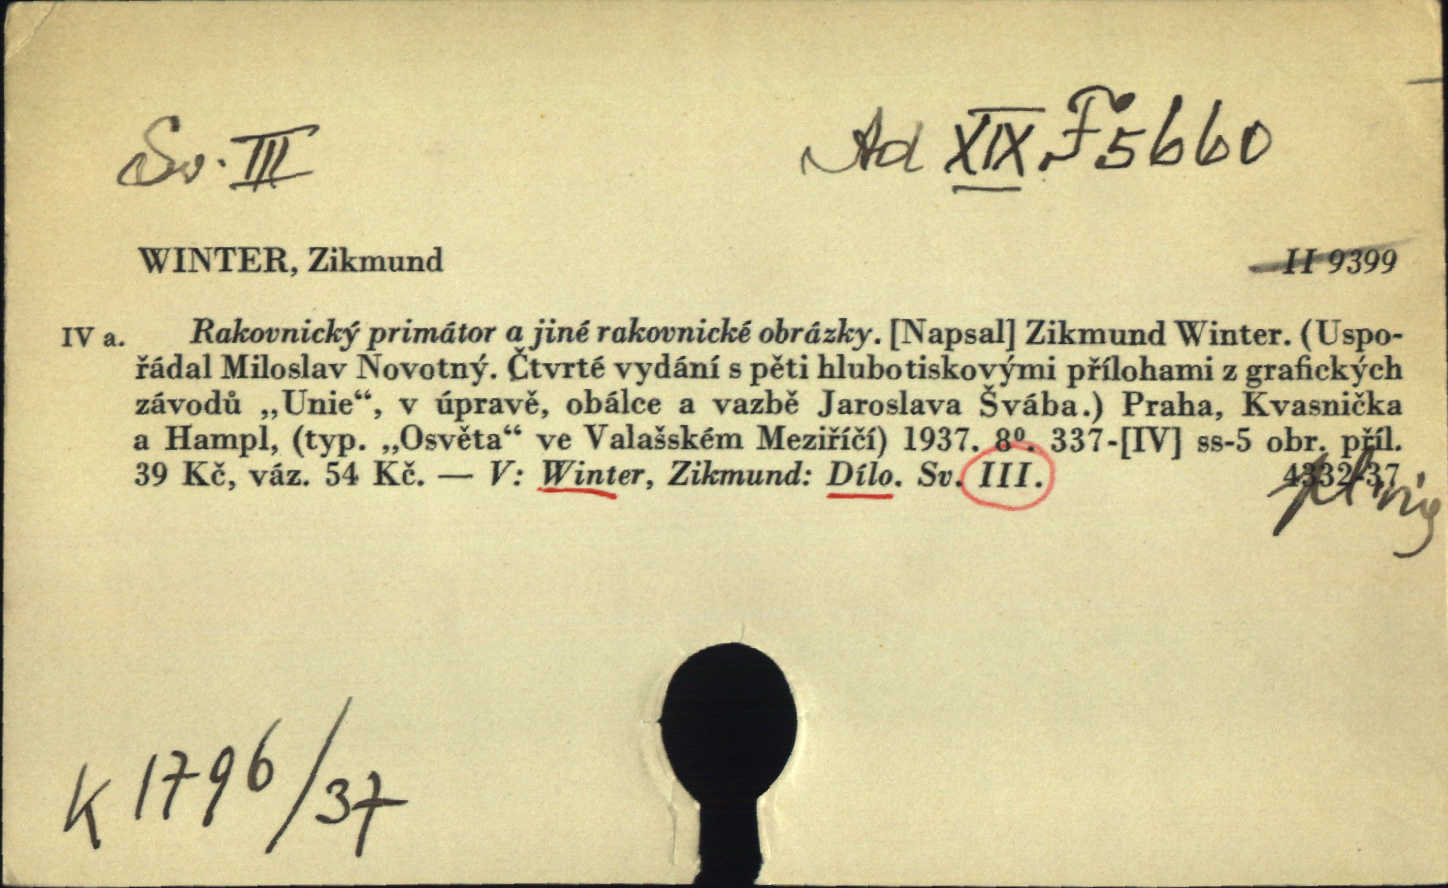 Sv. III
Ad XIX F 5660
WINTER, Zikmund
H 9399
IV a. Rakovnický primátor a jiné rakovnické obrázky. [Napsal] Zikmund Winter. (Uspo-
řádal Miloslav Novotný. Čtvrté vydání s pěti hlubotiskovými přílohami z grafických
závodů „Unie“, v úpravě, obálce a vazbě Jaroslava Švába.) Praha, Kvasnička
a Hampl, (typ. „Osvěta“ ve Valašském Meziříčí) 1937. 8º. 337-[IV] ss-5 obr. příl.
39 Kč, váz. 54 Kč. — V: Winter, Zikmund: Dílo. Sv. III. 4332-37
K 1796/37